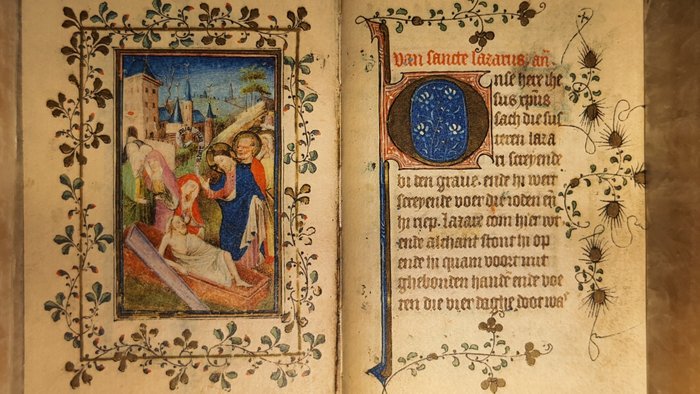 Van sancte lazarus. an̄
Onse here ihe
sus xp̄us
sach die sus
teren laza
ri screyende
bi den graue. ende hi wert
screyende voer die ioden en̄
hi riep. Lazare com hier wt
ende alehant stont hi op
ende hi quam voert mit
ghebonden hande ende voe
ten die vier daghe doot was